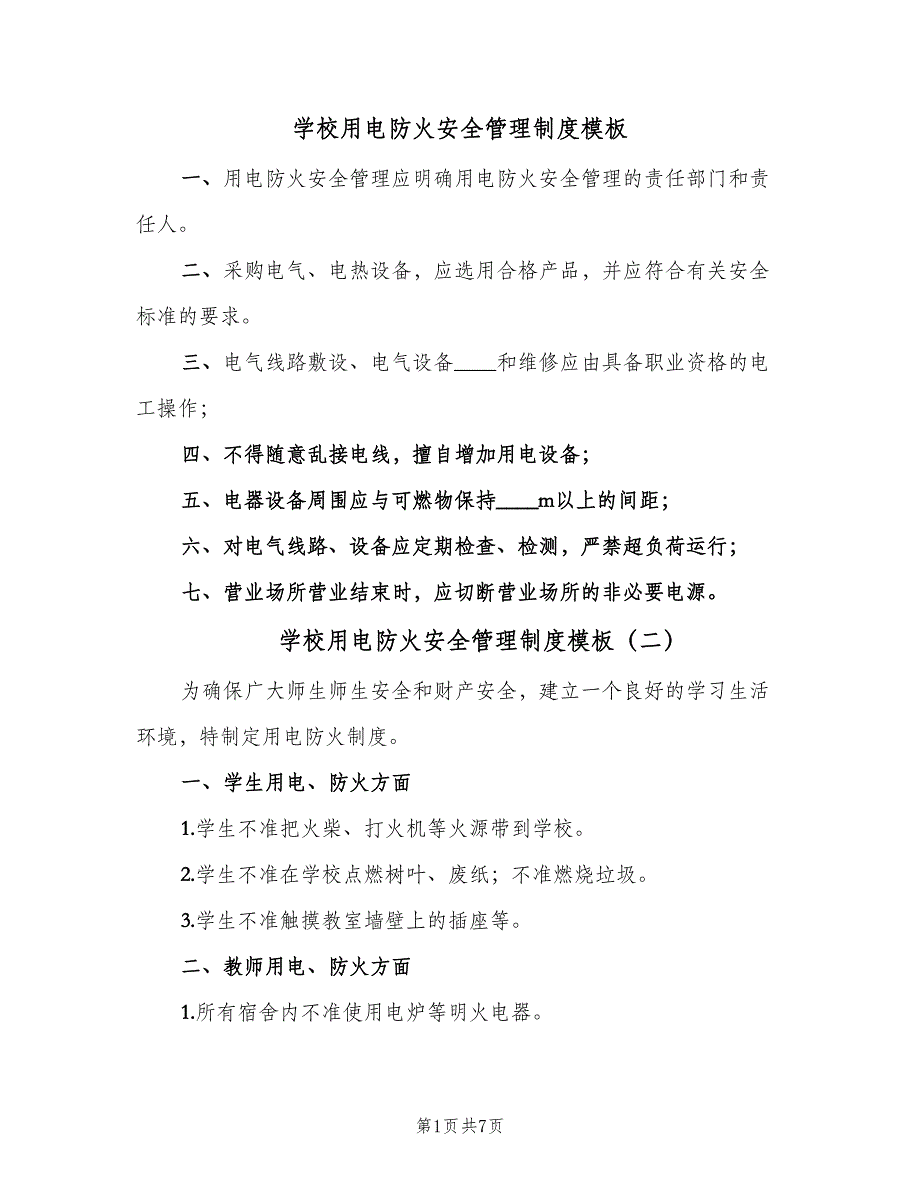 学校用电防火安全管理制度模板
一、用电防火安全管理应明确用电防火安全管理的责任部门和责
任人。
二、采购电气、电热设备，应选用合格产品，并应符合有关安全
标准的要求。
三、电气线路敷设、电气设备____和维修应由具备职业资格的电
工操作；
四、不得随意乱接电线，擅自增加用电设备；
五、电器设备周围应与可燃物保持____m以上的间距；
六、对电气线路、设备应定期检查、检测，严禁超负荷运行；
七、营业场所营业结束时，应切断营业场所的非必要电源。
学校用电防火安全管理制度模板（二）
为确保广大师生师生安全和财产安全，建立一个良好的学习生活
环境，特制定用电防火制度。
一、学生用电、防火方面
1.学生不准把火柴、打火机等火源带到学校。
2.学生不准在学校点燃树叶、废纸；不准燃烧垃圾。
3.学生不准触摸教室墙壁上的插座等。
二、教师用电、防火方面
1.所有宿舍内不准使用电炉等明火电器。
第1页共7页